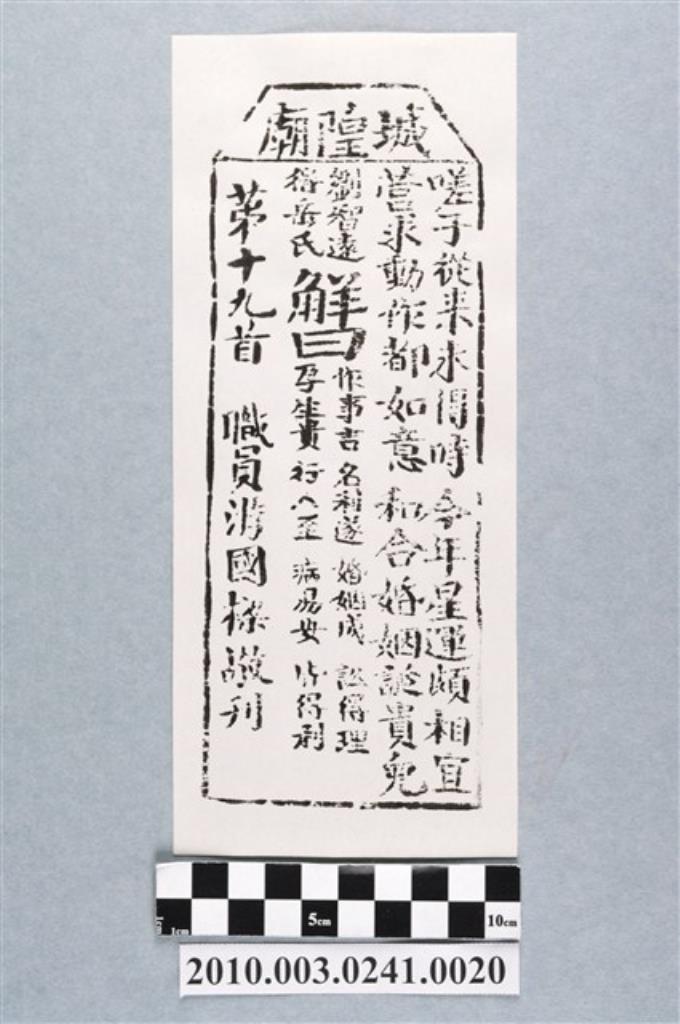 城隍廟
嗟子從來未得時今年星運頗相宜
營求動作都如意和合婚姻誕貴兒
劉智遠
得岳氏
解曰
作事吉 名利遂 婚姻成 訟得理
孕生貴 行人至 病易安 皆得利
苐十九首 職員游國樑敬刊
1cm 5cm 10cm
2010.003.0241.0020